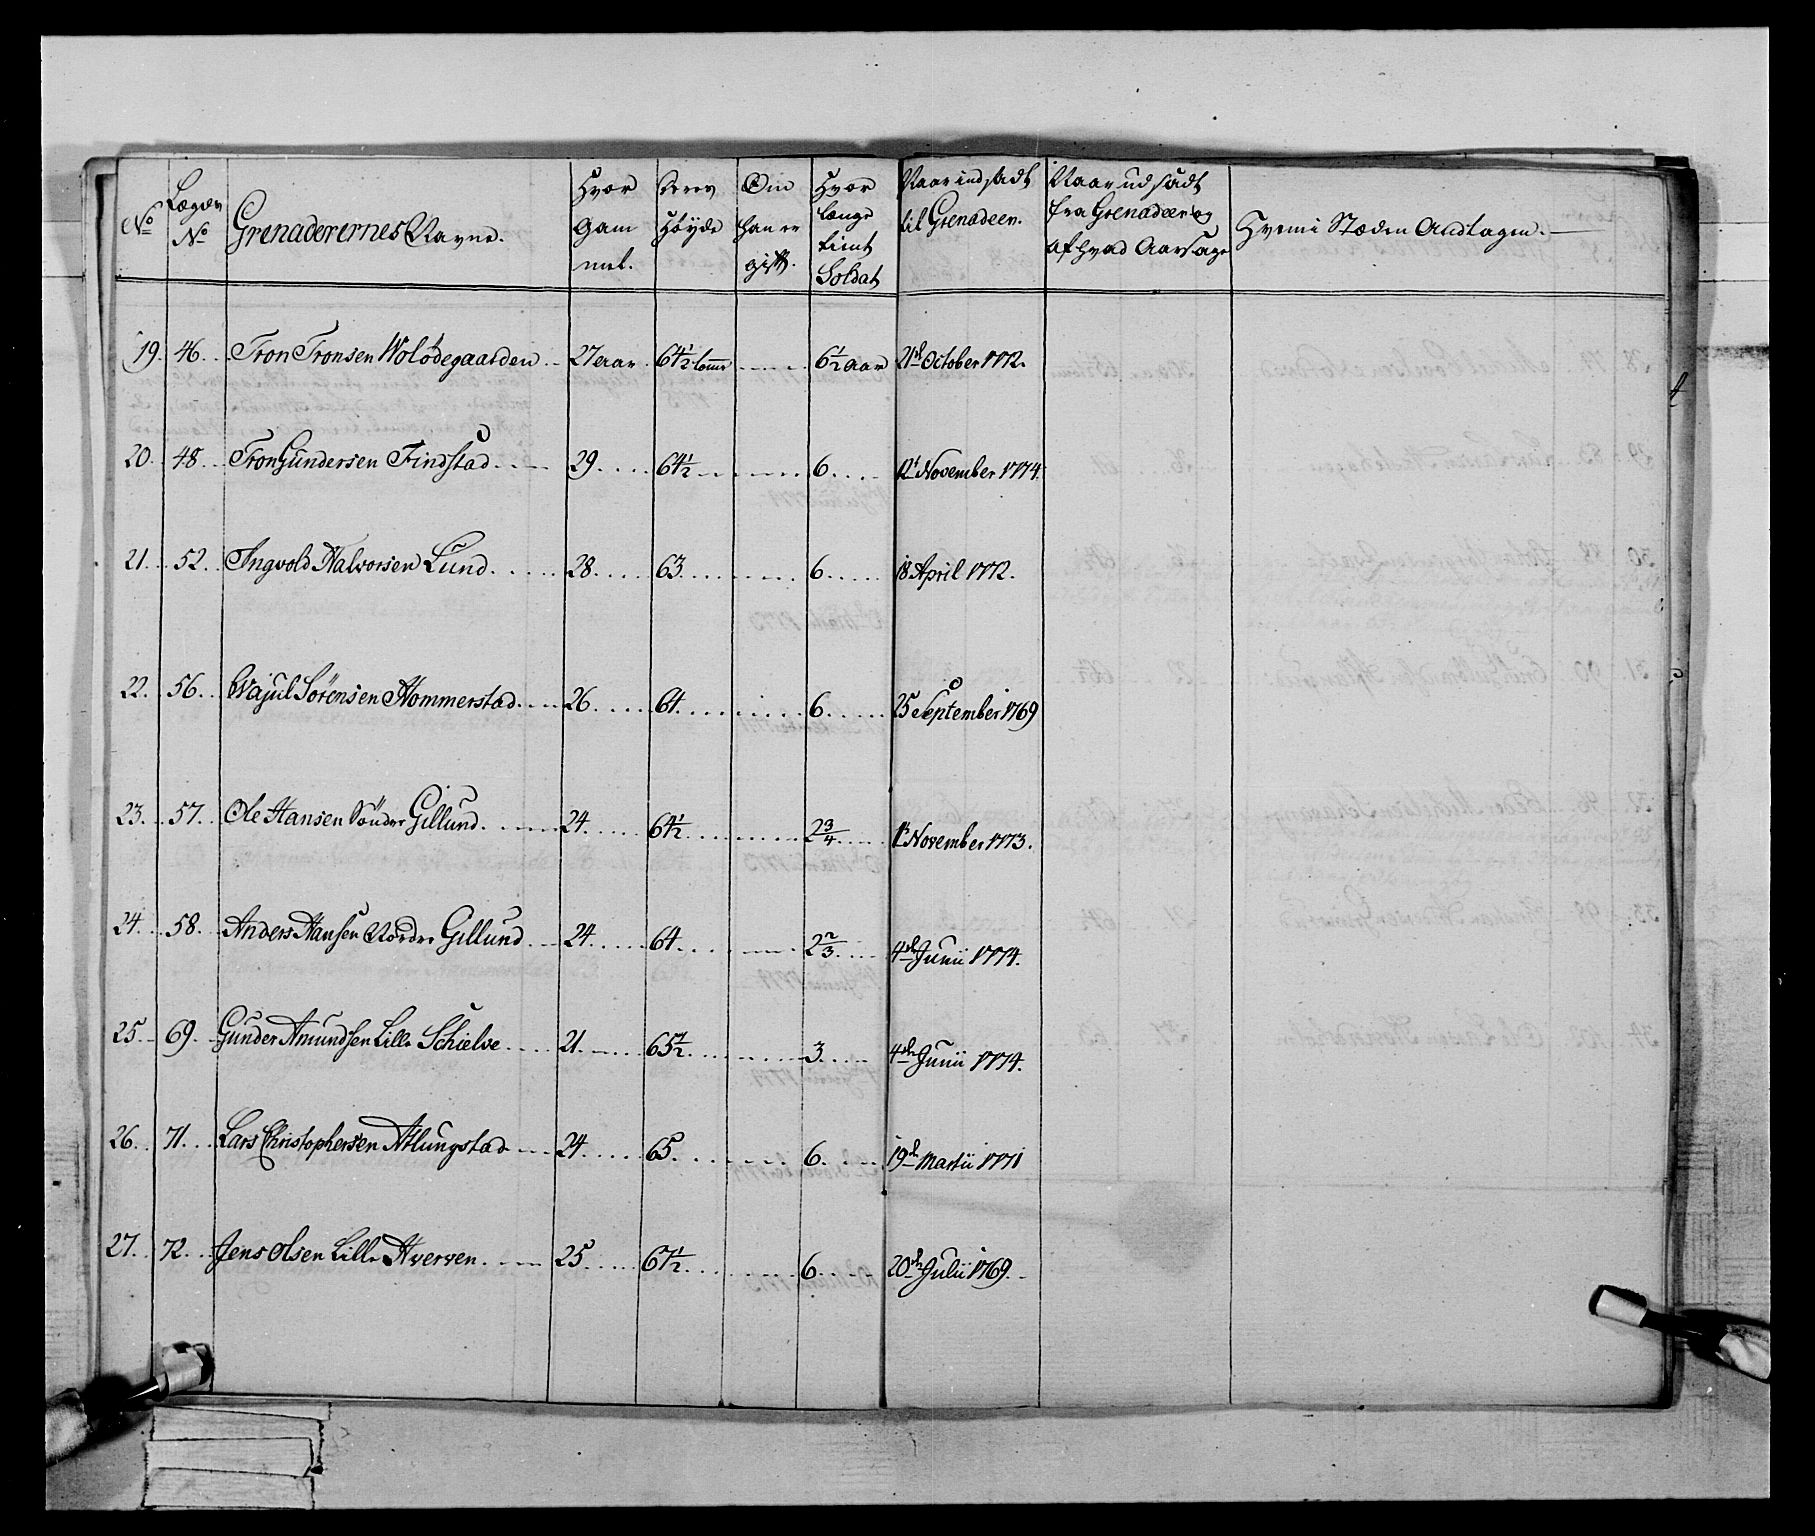 No Lægdens No Grenaderernes Navne. Hvor gammel. Deres Høyde Om han er gift. Hvor længe tient Soldat Naar indsadt til Grenadeer. Naar udsadt fra Grenadeer og af hvad Aarsage Hvem i Stæden Andtagen.
19. 46. Tron Tronsen Wolødegaarden 27 aar 64½ tomme 6½ aar 21de October 1772.
20. 48. Tron Gundersen Findstad 29 64½ 6. 12t November 1774.
21. 52. Ingvold Halvorsen Lund 28 63 6 18 April 1772.
22. 56. Sørensen Hommerstad 26 64 6 25 September 1769
23. 57. Ole Hansen Sönder Gillund 24 64½ 2¾ 1t November 1773.
24. 58. Anders Hansen Nordre Gillund 24 64 2⅔ 4de Junii 1774.
25. 69. Gunder Amundsen Lille Schielve 21 65½ 3 4de Junii 1774.
26. 71. Lars Christophersen Atlungstad 24 65 6 19de Martii 1771
27. 72. Jens Olsen Lille Hverven 25 67½ 6 20de Julii 1769.